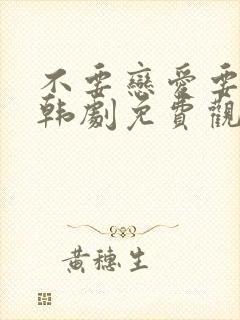 不要戀愛要
韩劇免費觀
黃穗生